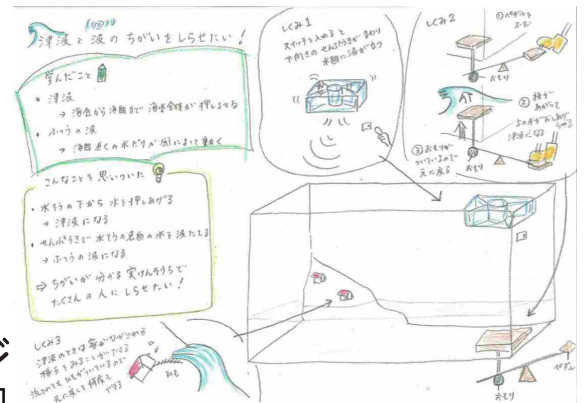 津波と波のちがいをしらせたい!
学んだこと
・津波
→海底から海面まで海水全体が押しよせる
・ふつうの波
→海面近くの水だけが風によって動く
こんなことを思いついた
・水そうの下から水を押しあげる
→津波になる
・せんぷうきで水そうの表面の水を波だてる
→ふつうの波になる
⇒ちがいが分かる実けんそうちで
たくさんの人にしらせたい!
しくみ1
スイッチを入れると
下向きのせんぷうきがまわり
水面に波が立つ
しくみ2
①ペダルを
ふむ
おもり
②板が
あがって
上の水がおしあげ
られる
津波になる
③おもりが
ついているので
元に戻る
おもり
しくみ3
津波のときは家がながされる
様子をみることができる
流されてもひもがついているので
元に戻して何度も
できる
ひも
おもり
ペダル